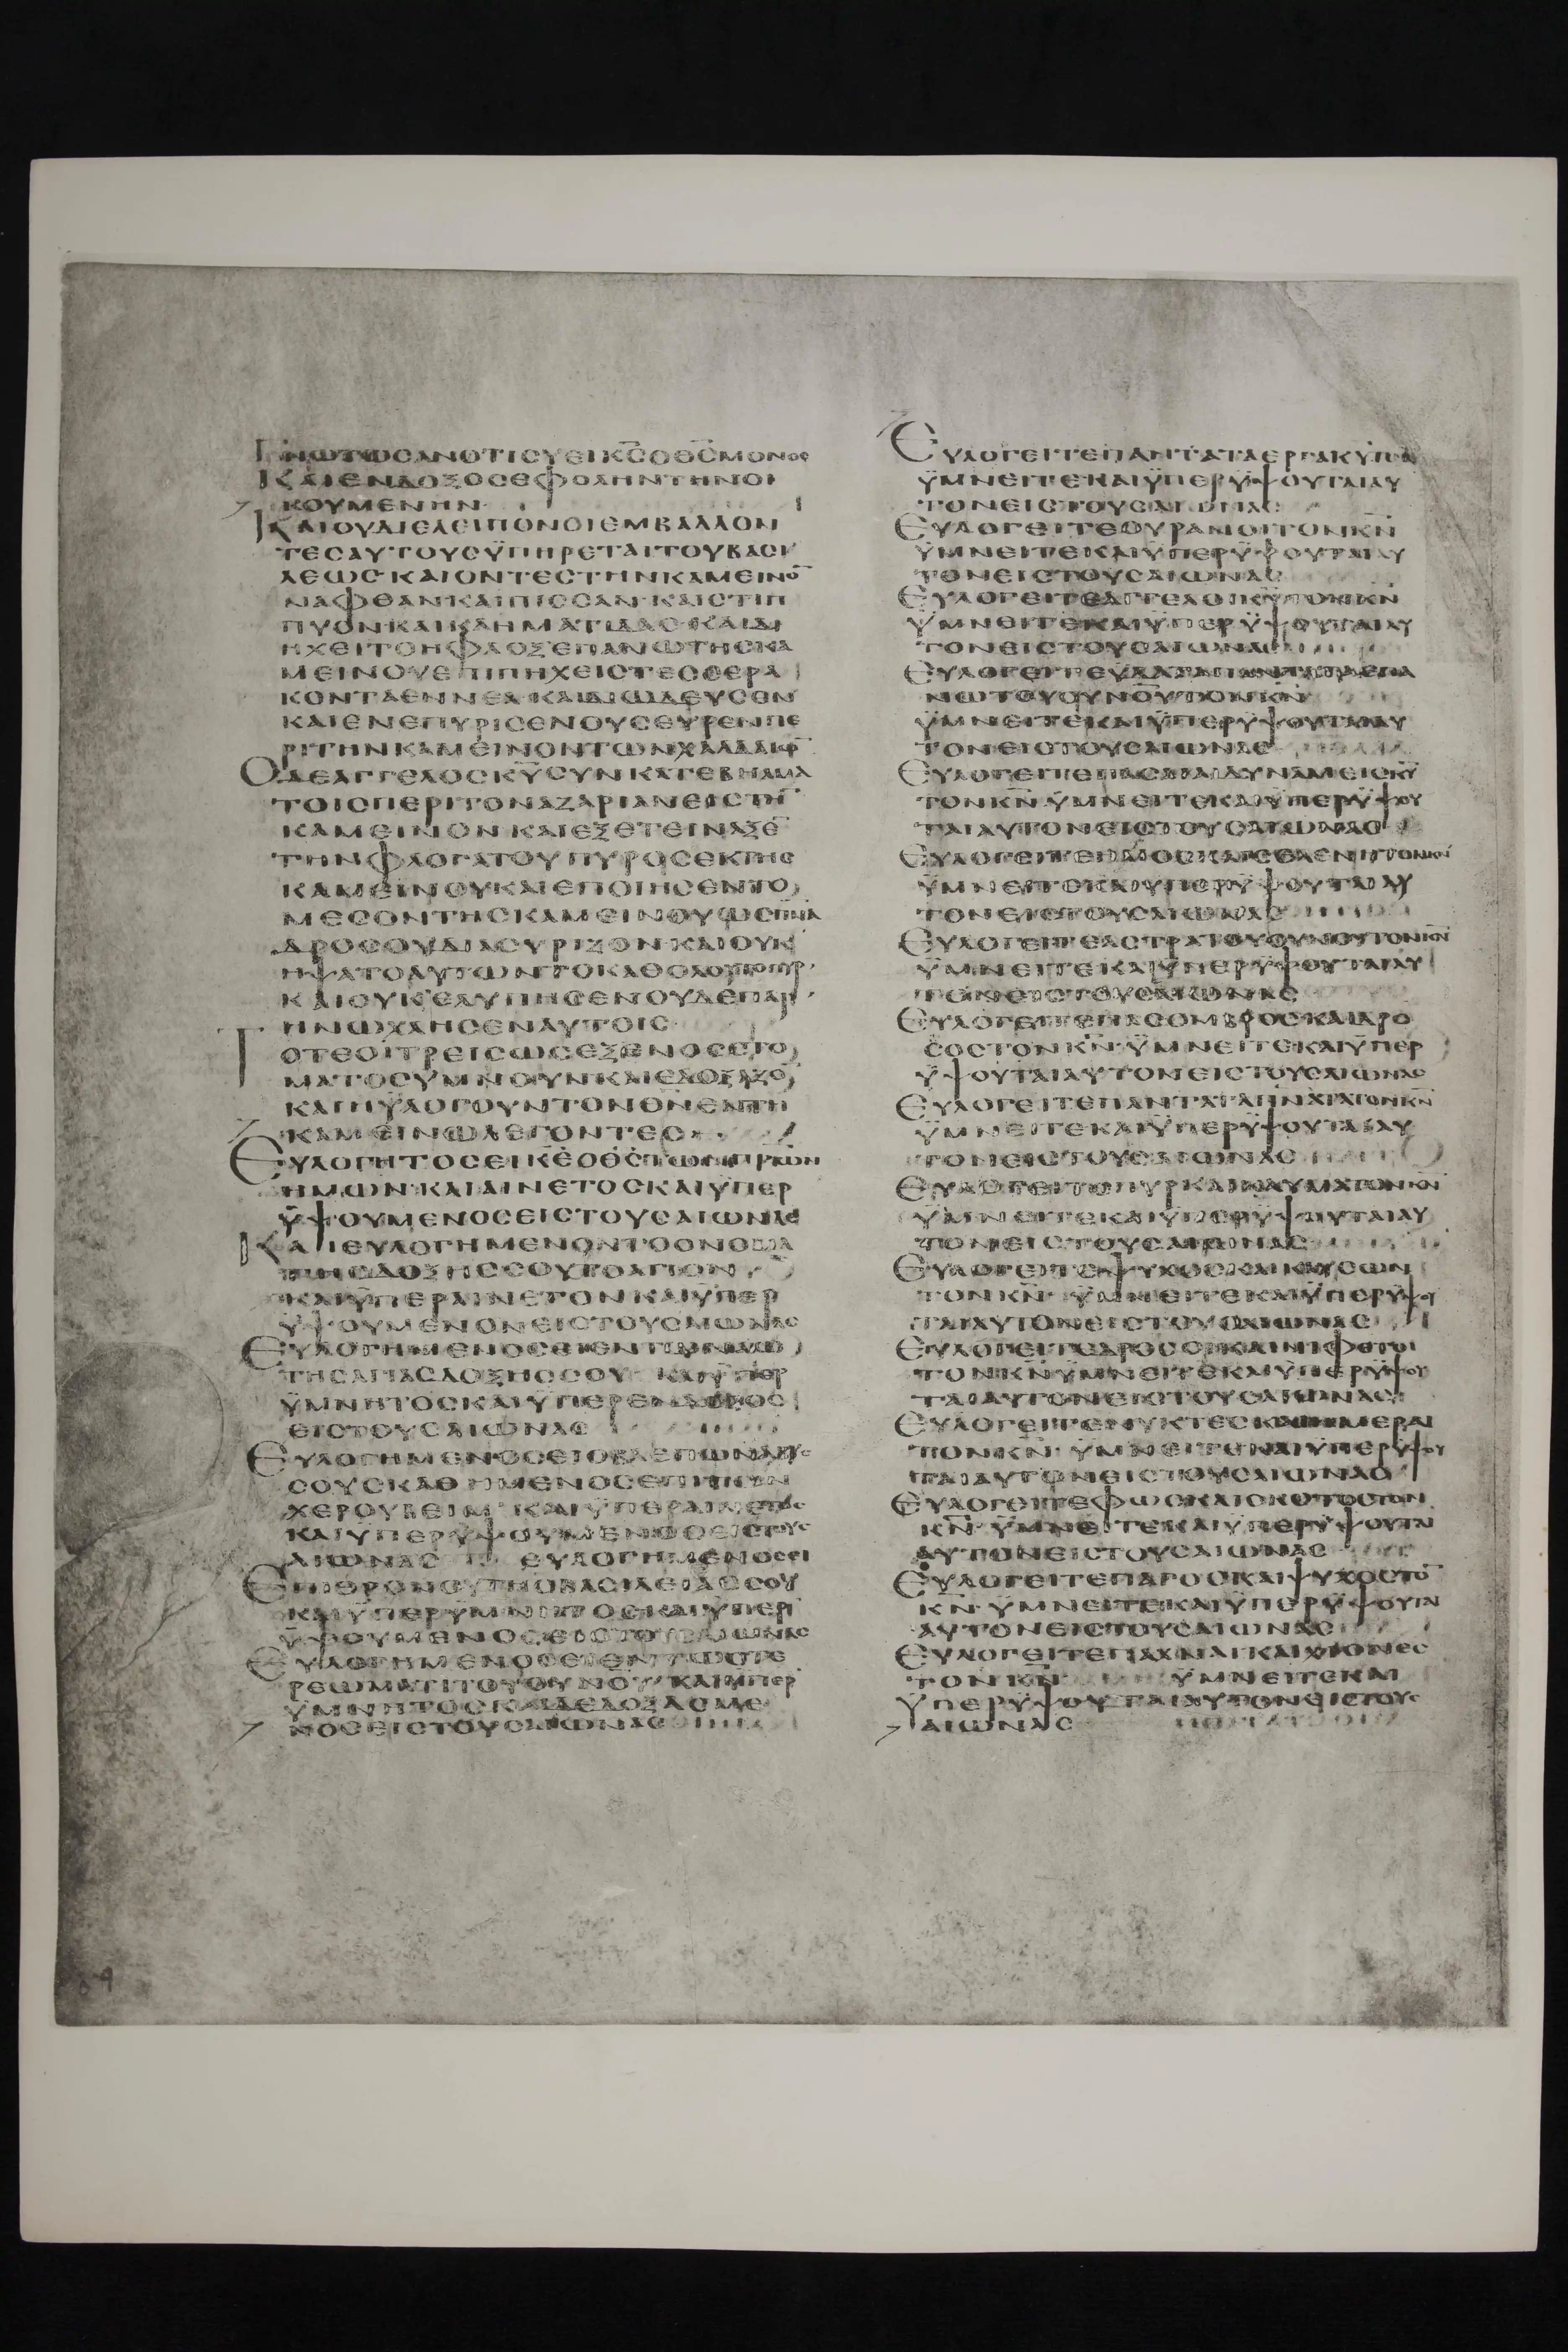 ΓΝΩΤΩCΑΝΟΤΙCΥΕΙΚ̅C̅ΟΘ̅C̅ΜΟΝΟC
ΚΑΙΕΝΔΟΞΟCΕΦΟΛΗΝΤΗΝΟΙ
ΚΟΥΜΕΝΗΝ
ΚΑΙΟΥΔΙΕΛΕΙΠΟΝΟΙΕΜΒΑΛΛΟΝ
ΤΕCΑΥΤΟΥCΫΠΗΡΕΤΑΙΤΟΥΒΑCΙ
ΛΕΩCΚΑΙΟΝΤΕCΤΗΝΚΑΜΕΙΝΟ̅
ΝΑΦΘΑΝΚΑΙΠΙCCΑΝ·ΚΑΙCΤΙΠ
ΠΥΟΝΚΑΙΚΛΗΜΑΤΙΔΑC·ΚΑΙΔΙ
ΗΧΕΙΤΟΗΦΛΟΞΕΠΑΝΩΤΗCΚΑ
ΜΕΙΝΟΥΕΠΙΠΗΧΕΙCΤΕCCΕΡΑ
ΚΟΝΤΑΕΝΝΕΑ·ΚΑΙΔΙΩΔΕΥCΕΝ
ΚΑΙΕΝΕΠΥΡΙCΕΝΟΥCΕΥΡΕΝΠΕ
ΡΙΤΗΝΚΑΜΕΙΝΟΝΤΩΝΧΑΛΔΑΙΩ̅
ΟΔΕΑΓΓΕΛΟCΚ̅Υ̅CΥΝΚΑΤΕΒΗΑΜΑ
ΤΟΙCΠΕΡΙΤΟΝΑΖΑΡΙΑΝΕΙCΤΗ̅
ΚΑΜΕΙΝΟΝΚΑΙΕΞΕΤΕΙΝΑΞΕ̅
ΤΗΝΦΛΟΓΑΤΟΥΠΥΡΟCΕΚΤΗC
ΚΑΜΕΙΝΟΥΚΑΙΕΠΟΙΗCΕΝΤΟ
ΜΕCΟΝΤΗCΚΑΜΕΙΝΟΥΩCΠΝ̅Α̅
ΔΡΟCΟΥΔΙΑCΥΡΙΖΟΝ·ΚΑΙΟΥΚ
ΗΨΑΤΟΑΥΤΩΝΤΟΚΑΘΟΛΟΥΤΟΠΥΡ·
ΚΑΙΟΥΚΕΛΥΠΗCΕΝΟΥΔΕΠΑΡ
ΗΝΩΧΛΗCΕΝΑΥΤΟΙC
ΤΟΤΕΟΙΤΡΕΙCΩCΕΞΕΝΟCCΤΟ
ΜΑΤΟCΥΜΝΟΥΝΚΑΙΕΔΟΞΑΖΟ̅
ΚΑΙΗΥΛΟΓΟΥΝΤΟΝΘ̅Ν̅ΕΝΤΗ
ΚΑΜΕΙΝΩΛΕΓΟΝΤΕC
ΕΥΛΟΓΗΤΟCΕΙΚ̅Ε̅ΟΘ̅C̅ΤΩΝΠ̅Ρ̅ΩΝ
ΗΜΩΝ·ΚΑΙΑΙΝΕΤΟCΚΑΙΫΠΕΡ
ΫΨΟΥΜΕΝΟCΕΙCΤΟΥCΑΙΩΝΑC
ΚΑΙΕΥΛΟΓΗΜΕΝΟΝΤΟΟΝΟΜΑ
ΤΗCΔΟΞΗCCΟΥΤΟΑΓΙΟΝ
ΚΑΙΫΠΕΡΑΙΝΕΤΟΝΚΑΙΫΠΕΡ
ΫΨΟΥΜΕΝΟΝΕΙCΤΟΥCΑΙΩΝΑC
ΕΥΛΟΓΗΜΕΝΟCΕΙΕΝΤΩΝΑΩ
ΤΗCΑΓΙΑCΔΟΞΗCCΟΥ ΚΑΙΫΠΕΡ
ΫΜΝΗΤΟCΚΑΙΫΠΕΡΕΝΔΟΞΟC
ΕΙCΤΟΥCΑΙΩΝΑC
ΕΥΛΟΓΗΜΕΝΟCΕΙΟΒΛΕΠΩΝΑΒΥC
CΟΥCΚΑΘΗΜΕΝΟCΕΠΙ
ΧΕΡΟΥΒΕΙΜ ΚΑΙΫΠΕΡΑΙΝΕΤΟC
ΚΑΙΫΠΕΡΫΨΟΥΜΕΝΟCΕΙCΤΟΥC
ΑΙΩΝΑC ΕΥΛΟΓΗΜΕΝΟCΕΙ
ΕΠΙΘΡΟΝΟΥΤΗCΒΑCΙΛΕΙΑCCΟΥ
ΚΑΙΫΠΕΡΫΜΝΗΤΟCΚΑΙΫΠΕΡ
ΫΨΟΥΜΕΝΟCΕΙCΤΟΥCΑΙΩΝΑC
ΕΥΛΟΓΗΜΕΝΟCΕΙΕΝΤΩCΤΕ
ΡΕΩΜΑΤΙΤΟΥΟΥΝΟΥ ΚΑΙΫΠΕΡ
ΫΜΝΗΤΟCΚΑΙΔΕΔΟΞΑCΜΕ
ΝΟCΕΙCΤΟΥCΑΙΩΝΑC
ΕΥΛΟΓΕΙΤΕΠΑΝΤΑΤΑΕΡΓΑΚ̅Υ̅ΤΟ
ΫΜΝΕΙΤΕΚΑΙΫΠΕΡΫΨΟΥΤΑΙΑΥ
ΤΟΝΕΙCΤΟΥCΑΙΩΝΑC
ΕΥΛΟΓΕΙΤΕΟΥΡΑΝΟΙΤΟΝΚ̅Ν̅
ΫΜΝΕΙΤΕΚΑΙΫΠΕΡΫΨΟΥΤΑΙΑΥ
ΤΟΝΕΙCΤΟΥCΑΙΩΝΑC
ΕΥΛΟΓΕΙΤΕΑΓΓΕΛΟΙΚ̅Υ̅ΤΟΝΚ̅Ν̅
ΫΜΝΕΙΤΕΚΑΙΫΠΕΡΫΨΟΥΤΑΙΑΥ
ΤΟΝΕΙCΤΟΥCΑΙΩΝΑC
ΕΥΛΟΓΕΙΤΕΥΔΑΤΑΠΑΝΤΑΤΑΕΠΑ
ΝΩΤΟΥΟΥΝΟΥΤΟΝΚ̅Ν̅
ΫΜΝΕΙΤΕΚΑΙΫΠΕΡΫΨΟΥΤΑΙΑΥ
ΤΟΝΕΙCΤΟΥCΑΙΩΝΑC
ΕΥΛΟΓΕΙΤΕΠΑCΑΙΑΙΔΥΝΑΜΕΙCΚ̅Υ̅
ΤΟΝΚ̅Ν̅·ΫΜΝΕΙΤΕΚΑΙΫΠΕΡΫΨΟΥ
ΤΑΙΑΥΤΟΝΕΙCΤΟΥCΑΙΩΝΑC
ΕΥΛΟΓΕΙΤΕΗΛΙΟCΚΑΙCΕΛΗΝΗΤΟΝΚ̅Ν̅
ΫΜΝΕΙΤΕΚΑΙΫΠΕΡΫΨΟΥΤΑΙΑΥ
ΤΟΝΕΙCΤΟΥCΑΙΩΝΑC
ΕΥΛΟΓΕΙΤΕΑCΤΡΑΤΟΥΟΥΝΟΥΤΟΝΚ̅Ν̅
ΫΜΝΕΙΤΕΚΑΙΫΠΕΡΫΨΟΥΤΑΙΑΥ
ΤΟΝΕΙCΤΟΥCΑΙΩΝΑC
ΕΥΛΟΓΕΙΤΕΠΑCΟΜΒΡΟCΚΑΙΔΡΟ
CΟCΤΟΝΚ̅Ν̅·ΫΜΝΕΙΤΕΚΑΙΫΠΕΡ
ΫΨΟΥΤΑΙΑΥΤΟΝΕΙCΤΟΥCΑΙΩΝΑC
ΕΥΛΟΓΕΙΤΕΠΑΝΤΑΤΑΠΝΑΤΑΤΟΝΚ̅Ν̅
ΫΜΝΕΙΤΕΚΑΙΫΠΕΡΫΨΟΥΤΑΙΑΥ
ΤΟΝΕΙCΤΟΥCΑΙΩΝΑC
ΕΥΛΟΓΕΙΤΕΠΥΡΚΑΙΚΑΥΜΑΤΟΝΚ̅Ν̅
ΫΜΝΕΙΤΕΚΑΙΫΠΕΡΫΨΟΥΤΑΙΑΥ
ΤΟΝΕΙCΤΟΥCΑΙΩΝΑC
ΕΥΛΟΓΕΙΤΕΨΥΧΟCΚΑΙΚΑΥCΩΝ
ΤΟΝΚ̅Ν̅· ΫΜΝΕΙΤΕΚΑΙΫΠΕΡΫΨΟΥ
ΤΑΙΑΥΤΟΝΕΙCΤΟΥCΑΙΩΝΑC
ΕΥΛΟΓΕΙΤΕΔΡΟCΟΙΚΑΙΝΙΦΕΤΟΙ
ΤΟΝΚ̅Ν̅ΫΜΝΕΙΤΕΚΑΙΫΠΕΡΫΨΟΥ
ΤΑΙΑΥΤΟΝΕΙCΤΟΥCΑΙΩΝΑC
ΕΥΛΟΓΕΙΤΕΝΥΚΤΕCΚΑΙΗΜΕΡΑΙ
ΤΟΝΚ̅Ν̅· ΫΜΝΕΙΤΕΚΑΙΫΠΕΡΫΨΟΥ
ΤΑΙΑΥΤΟΝΕΙCΤΟΥCΑΙΩΝΑC
ΕΥΛΟΓΕΙΤΕΦΩCΚΑΙCΚΟΤΟCΤΟΝ
Κ̅Ν̅·ΫΜΝΕΙΤΕΚΑΙΫΠΕΡΫΨΟΥΤΑΙ
ΑΥΤΟΝΕΙCΤΟΥCΑΙΩΝΑC
ΕΥΛΟΓΕΙΤΕΠΑΓΟCΚΑΙΨΥΧΟCΤΟ̅
Κ̅Ν̅·ΫΜΝΕΙΤΕΚΑΙΫΠΕΡΫΨΟΥΤΑΙ
ΑΥΤΟΝΕΙCΤΟΥCΑΙΩΝΑC
ΕΥΛΟΓΕΙΤΕΠΑΧΝΑΙΚΑΙΧΙΟΝΕC
ΤΟΝΚ̅Ν̅ ΫΜΝΕΙΤΕΚΑΙ
ΫΠΕΡΫΨΟΥΤΑΙΑΥΤΟΝΕΙCΤΟΥC
ΑΙΩΝΑC